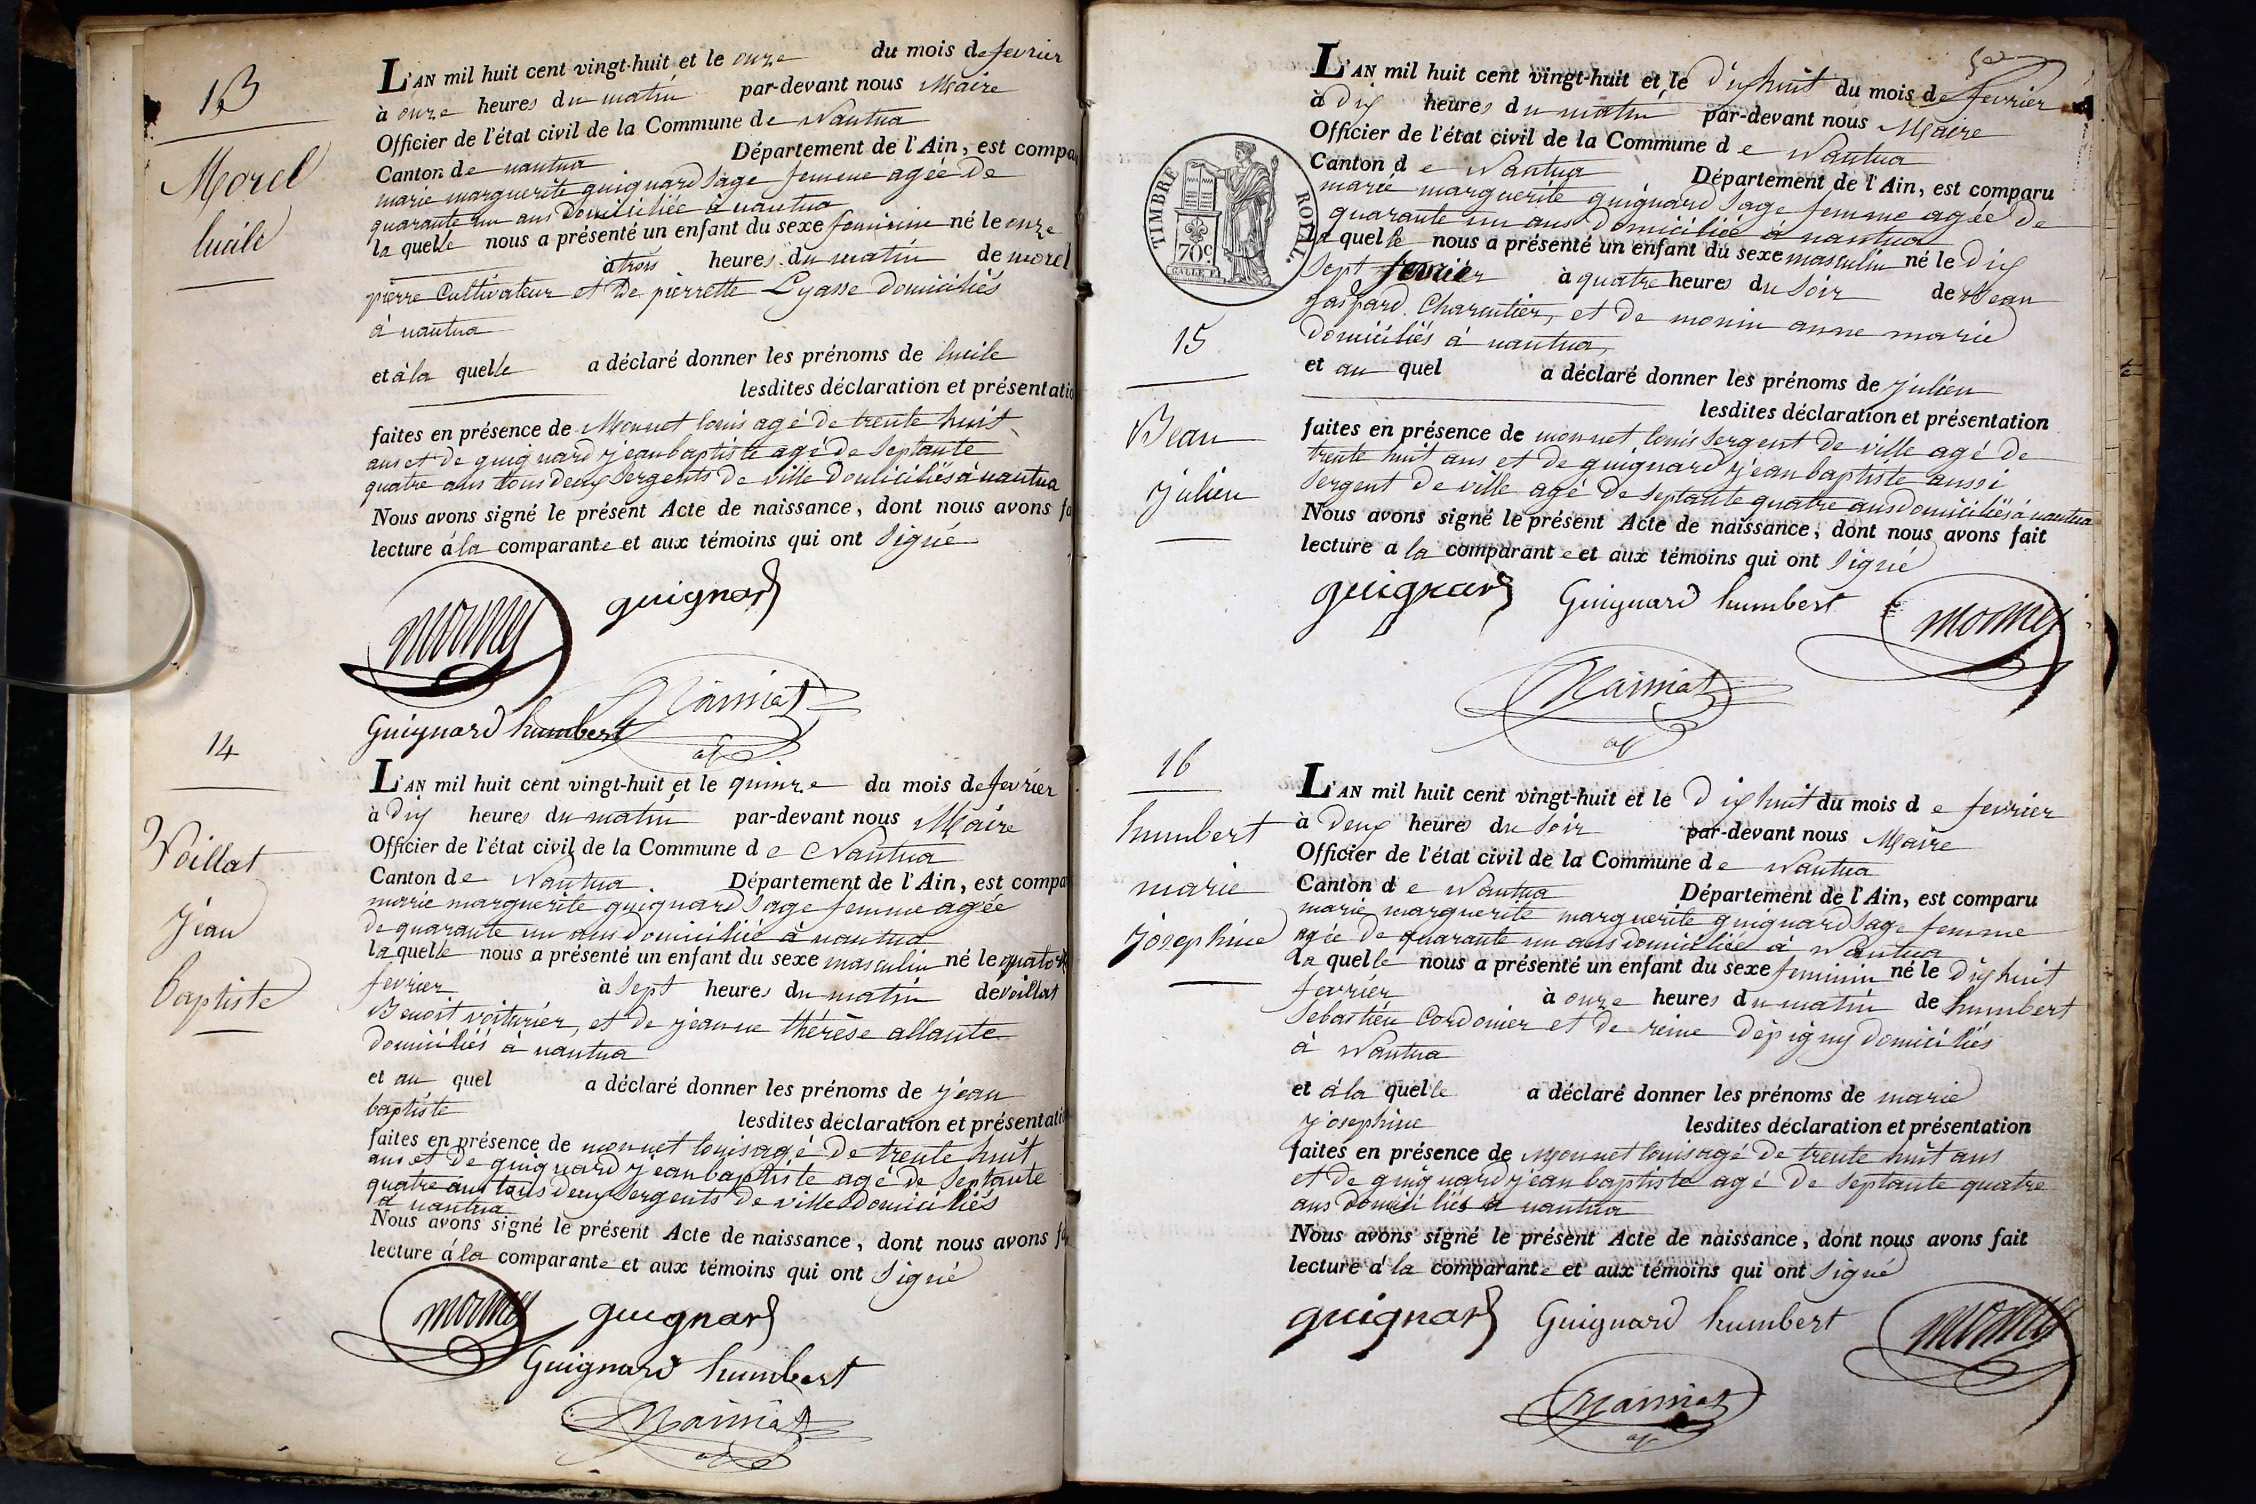 13
Morel
lucile
L'AN mil huit cent vingt-huit et le onze du mois de fevrier
à onze heures du matin par-devant nous Maire
Officier de l'état civil de la Commune de Nantua
Canton de nantua Département de l'Ain, est compa
marie marguerite guignard sage femme agée de
quarante un ans domiciliée à nantua
la quelle nous a présenté un enfant du sexe feminin né le onze
à trois heures du matin de morel
pierre Cultivateur et de pierrette Lyasse domiciliés
à nantua
et à la quelle a déclaré donner les prénoms de lucile
lesdites déclaration et présentatio
faites en présence de Monnet louis agé de trente huit
ans et de guignard jean baptiste agé de septante
quatre ans tous deux sergents de ville domiciliés à nantua
Nous avons signé le présent Acte de naissance, dont nous avons fa
lecture à la comparante et aux témoins qui ont signé
monnet guignard
Guignard humbert
14
Voillat
jean
baptiste
L'AN mil huit cent vingt-huit et le quinze du mois de fevrier
à dix heures du matin par-devant nous Maire
Officier de l'état civil de la Commune de Nantua
Canton de Nantua. Département de l'Ain, est compa
marie marguerite guignard sage femme agée
de quarante un ans domiciliée à nantua
la quelle nous a présenté un enfant du sexe masculin né le quatorz
fevrier à sept heures du matin de voillat
Benoit voiturier, et de jeanne thérèse allante
domiciliés à nantua
et au quel a déclaré donner les prénoms de jean
baptiste lesdites déclaration et présentati
faites en présence de monnet louis agé de trente huit
ans et de guignard jean baptiste agé de septante
quatre ans tous deux sergents de ville domiciliés
à nantua
Nous avons signé le présent Acte de naissance, dont nous avons f
lecture à la comparante et aux témoins qui ont signé
monnet guignard
Guignard humbert
TIMBRE ROYAL.
70c
15
Bean
julien
L'AN mil huit cent vingt-huit et le dix huit du mois de fevrier
à dix heures du matin par-devant nous Maire
Officier de l'état civil de la Commune de Nantua
Canton de Nantua Département de l'Ain, est comparu
marie marguerite guignard sage femme agée de
quarante un ans domiciliée à nantua
la quelle nous a présenté un enfant du sexe masculin né le dix
sept fevrier à quatre heures du soir de Bean
gaspard Charcutier, et de monin anne marie
domiciliés à nantua,
et au quel a déclaré donner les prénoms de julien
lesdites déclaration et présentation
faites en présence de monnet louis sergent de ville agé de
trente huit ans et de guignard jean baptiste aussi
sergent de ville agé de septante quatre ans domiciliés à nantua
Nous avons signé le présent Acte de naissance, dont nous avons fait
lecture a la comparante et aux témoins qui ont signé
guignard Guignard humbert monnet
16
humbert
marie
josephine
L'AN mil huit cent vingt-huit et le dix huit du mois de fevrier
à deux heures du soir par-devant nous Maire
Officier de l'état civil de la Commune de Nantua
Canton de Nantua Département de l'Ain, est comparu
marie marguerite marguerite guignard sage femme
agée de quarante un ans domiciliée à Nantua
la quelle nous a présenté un enfant du sexe feminin né le dix huit
fevrier à onze heures du matin de humbert
Sebastien Cordonier et de reine dépigny domiciliés
à Nantua
et à la quelle a déclaré donner les prénoms de marie
josephine lesdites déclaration et présentation
faites en présence de Monnet louis agé de trente huit ans
et de guignard jean baptiste agé de septante quatre
ans domiciliés à nantua
Nous avons signé le présent Acte de naissance, dont nous avons fait
lecture à la comparante et aux témoins qui ont signé
guignard Guignard humbert monnet